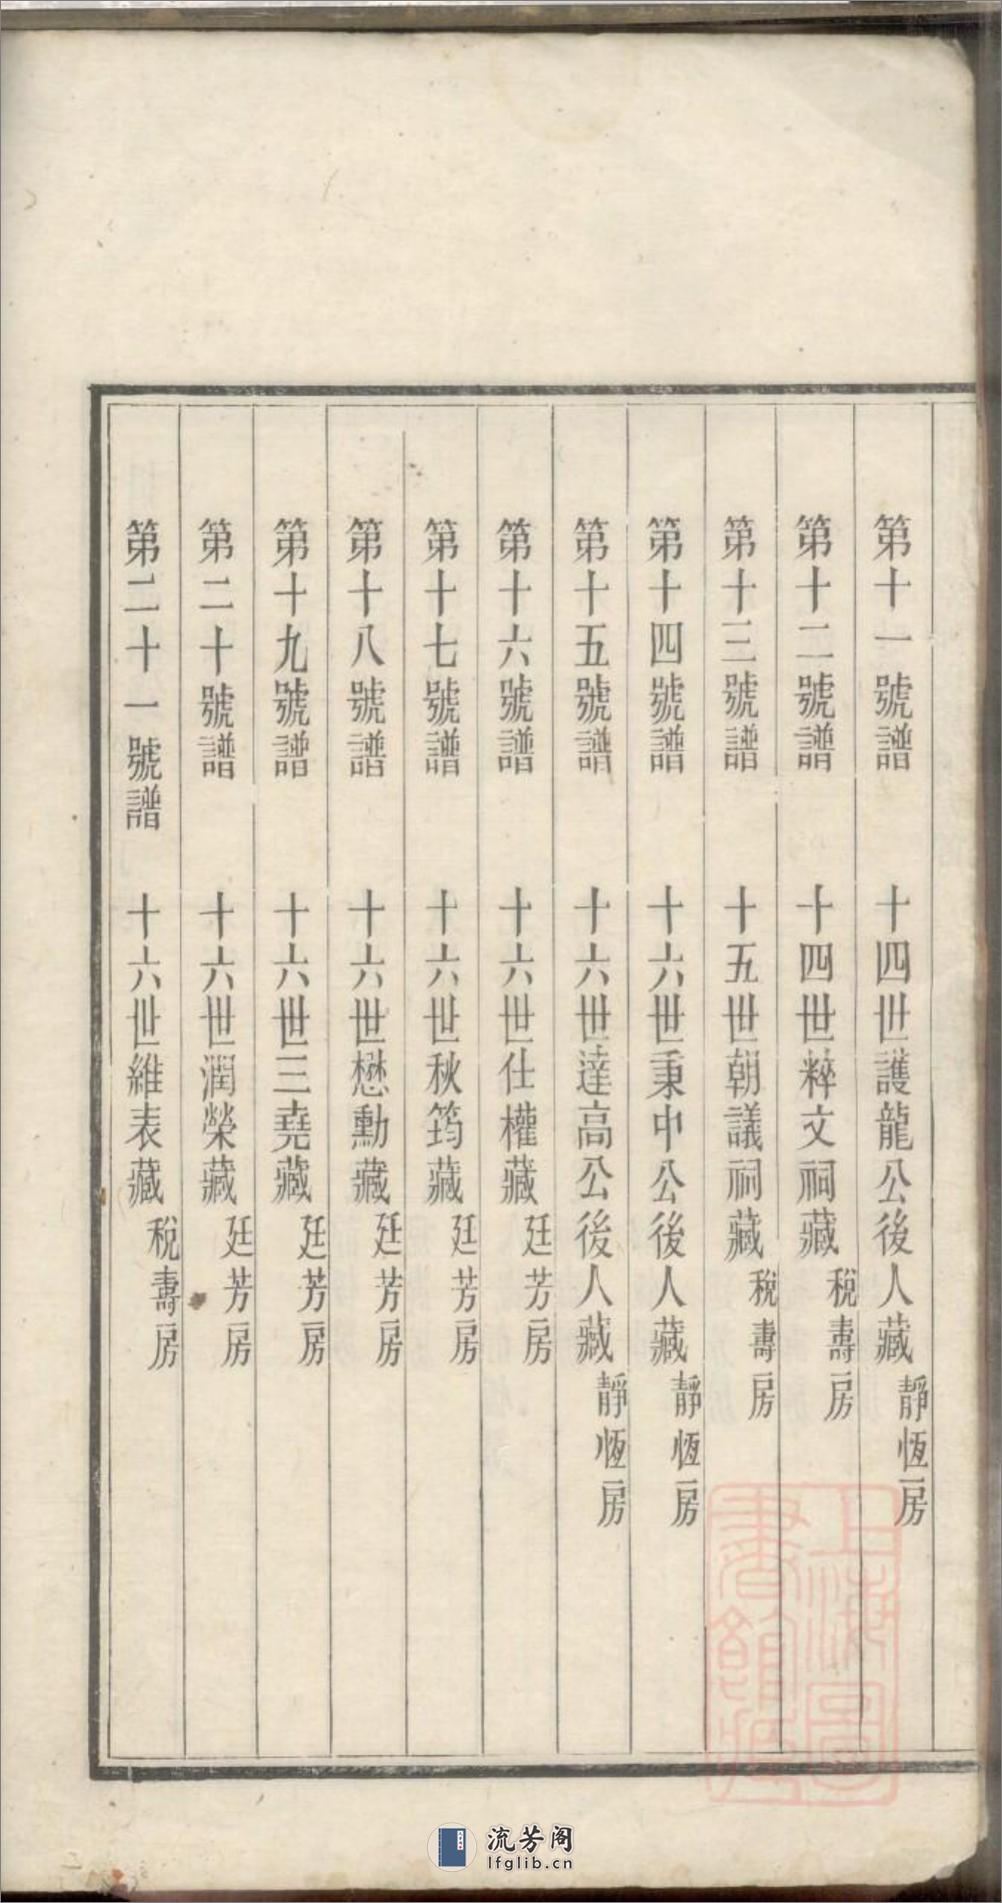 第十一號譜　十四世護龍公後人藏　靜恆房
第十二號譜　十四世粹文祠藏　稅壽房
第十三號譜　十五世朝議祠藏　稅壽房
第十四號譜　十六世秉中公後人藏　靜恆房
第十五號譜　十六世達高公後人藏　靜恆房
第十六號譜　十六世仕權藏　廷芳房
第十七號譜　十六世秋筠藏　廷芳房
第十八號譜　十六世懋勳藏　廷芳房
第十九號譜　十六世三堯藏　廷芳房
第二十號譜　十六世潤榮藏　廷芳房
第二十一號譜　十六世維表藏　稅壽房
上海圖
書館藏
流芳阁
lfglib.cn